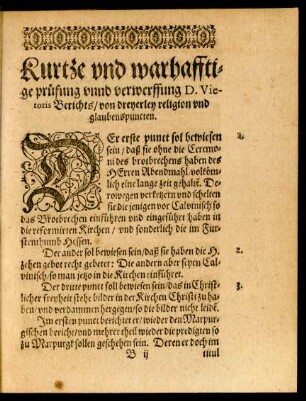 Kurtze vnd warhaffti-
ge prüfung vnnd verwerffung D. Vic-
toris Berichts/ von dreyerley religion vnd
glaubenspuncten.
DEr erste punct sol bewiesen
sein/ daß sie ohne die Ceremo-
ni des brotbrechens haben des
HErren Abendmahl volköm-
lich eine lange zeit gehaltē. De-
rowegen verketzern vnd schelten
sie die jenigen vor Calvinisch so
das Brotbrechen einführen vnd eingeführt haben in
die reformirten Kirchen/ vnd sonderlich die im Für-
stenthumb Hessen.
1.
Der ander sol bewiesen sein/ daß sie haben die H.
zehen gebot recht gebetet: Die andern aber seyen Cal-
vinisch/ so man jetzo in die Kirchen einführet.
2.
Der dritte punct soll bewiesen sein/ das in Christ-
licher freyheit stehe bilder in der Kirchen Christi zu ha-
ben/ vnd verdammen hergegen/ so die bilder nicht leidē.
3.
Im ersten punct berichtet er/ wieder den Marpur-
gischen bericht/ vnd mehrer theil wieder die predigten so
zu Marpurgk sollen geschehen sein. Deren er doch im
B ij
titul